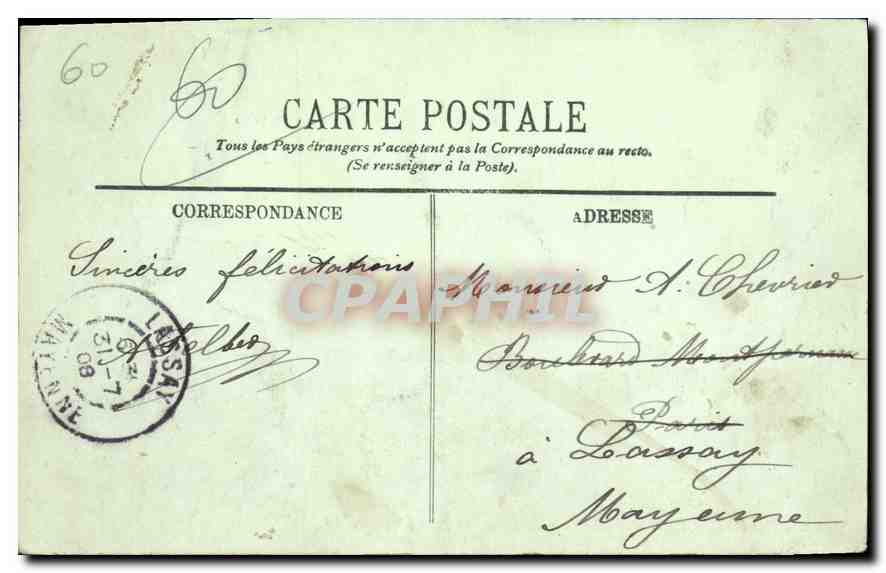 60
60
CARTE POSTALE
Tous les Pays étrangers n'acceptent pas la Correspondance au recto.
(Se renseigner à la Poste).
CORRESPONDANCE
ADRESSE
Sincères félicitations
LASSAY
6
31-7
08
MAYENNE
CPAPHIL
Monsieur A. Chevrier
Boulevard Montparnasse
Paris
à Lassay
Mayenne